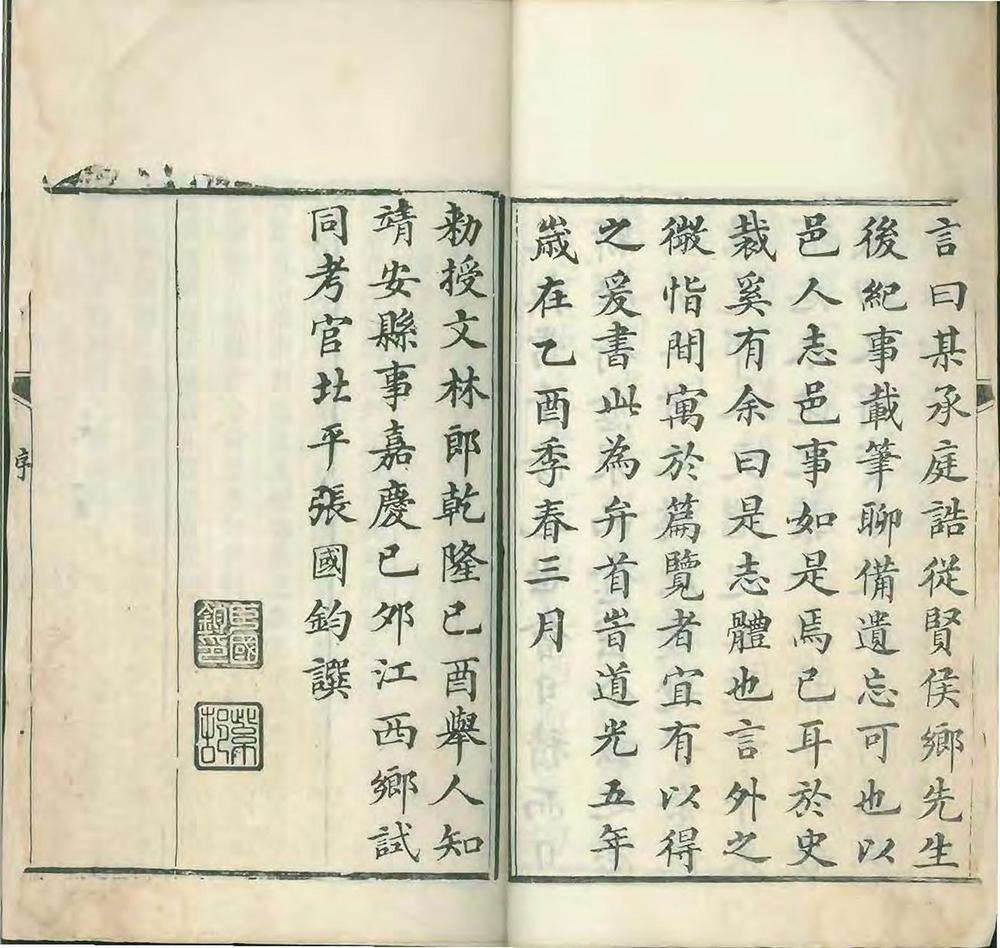 言曰某承庭誥從賢侯鄉先生
後紀事載筆聊備遺忘可也以
邑人志邑事如是焉已耳於史
裁奚有余曰是志體也言外之
微恉閒寓於篇覽者宜有以得
之爰書此為弁首旹道光五年
歲在乙酉季春三月
勅授文林郎乾隆己酉舉人知
靖安縣事嘉慶己卯江西鄉試
同考官北平張國鈞譔
序